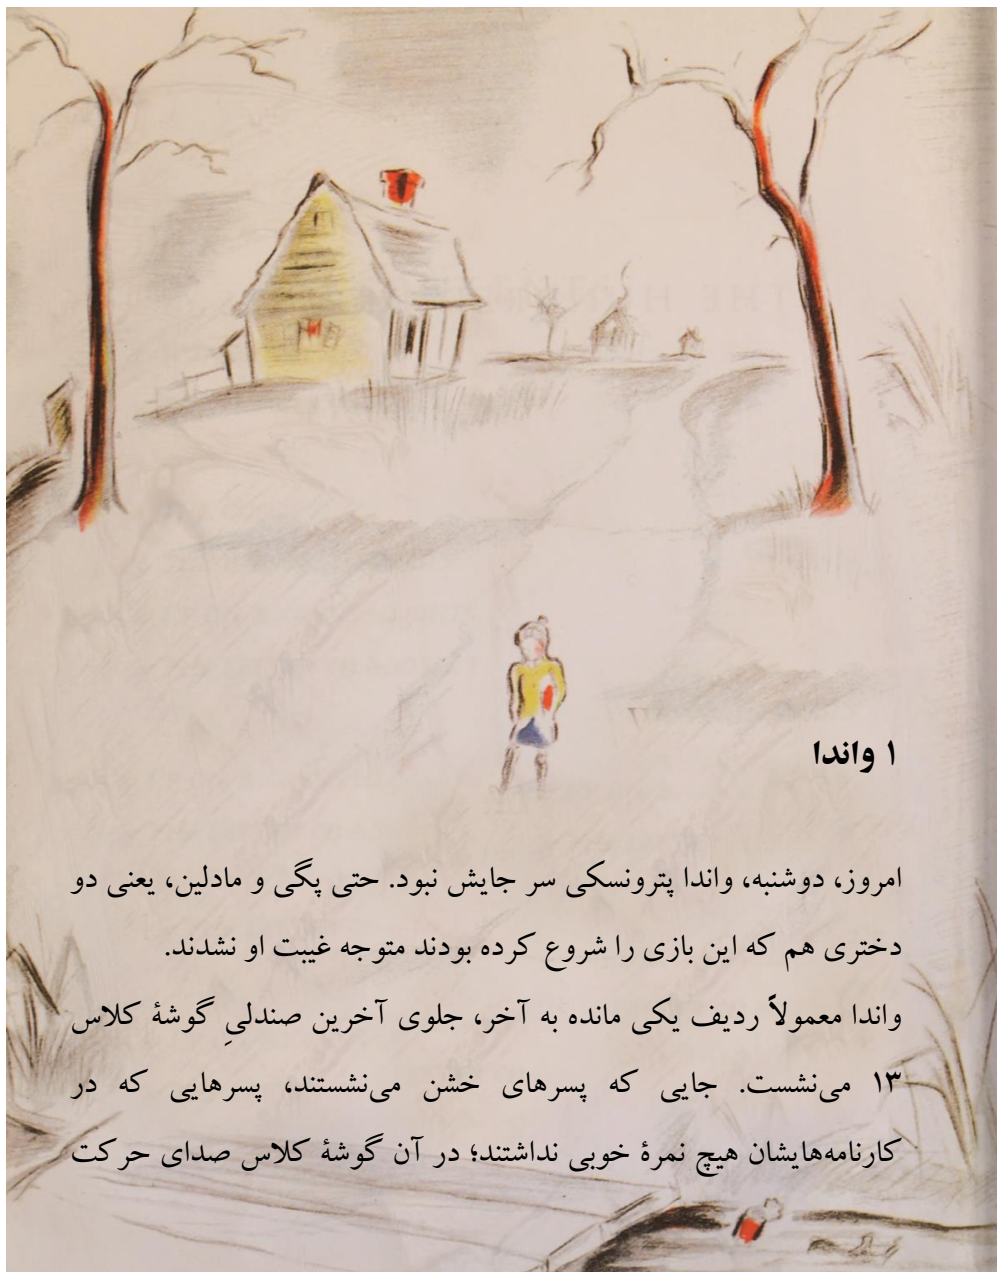 ۱ واندا
امروز، دوشنبه، واندا پترونسکی سر جایش نبود. حتی پگی و مادلین، یعنی دو
دختری هم که این بازی را شروع کرده بودند متوجه غیبت او نشدند.
واندا معمولاً ردیف یکی مانده به آخر، جلوی آخرین صندلیِ گوشهٔ کلاس
۱۳ می‌نشست. جایی که پسرهای خشن می‌نشستند، پسرهایی که در
کارنامه‌هایشان هیچ نمرهٔ خوبی نداشتند؛ در آن گوشهٔ کلاس صدای حرکت